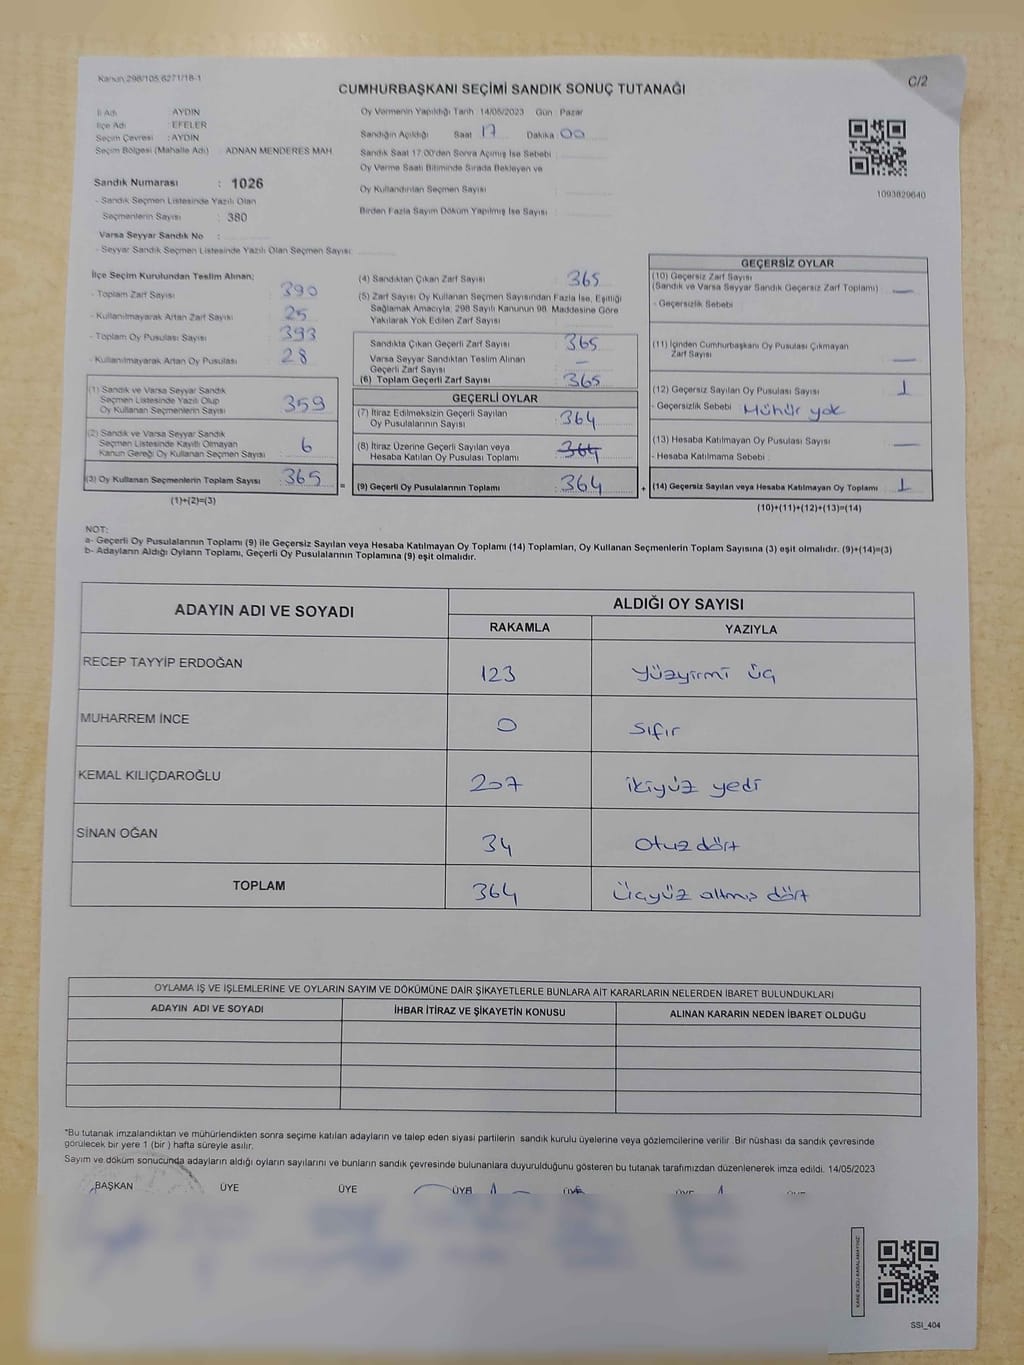 Kanun:298/105,6271/18-1
C/2
CUMHURBAŞKANI SEÇİMİ SANDIK SONUÇ TUTANAĞI
İl Adı AYDIN
İlçe Adı : EFELER
Seçim Çevresi : AYDIN
Seçim Bölgesi (Mahalle Adı) : ADNAN MENDERES MAH.
Sandık Numarası : 1026
- Sandık Seçmen Listesinde Yazılı Olan
Seçmenlerin Sayısı : 380
Varsa Seyyar Sandık No :
- Seyyar Sandık Seçmen Listesinde Yazılı Olan Seçmen Sayısı:
Oy Vermenin Yapıldığı Tarih : 14/05/2023 Gün : Pazar
Sandığın Açıldığı Saat 17 Dakika 00
Sandık Saat 17:00'den Sonra Açılmış İse Sebebi :
Oy Verme Saati Bitiminde Sırada Bekleyen ve
Oy Kullandırılan Seçmen Sayısı :
Birden Fazla Sayım Döküm Yapılmış İse Sayısı :
1093829640
İlçe Seçim Kurulundan Teslim Alınan;
- Toplam Zarf Sayısı : 390
- Kullanılmayarak Artan Zarf Sayısı : 25
- Toplam Oy Pusulası Sayısı : 393
- Kullanılmayarak Artan Oy Pusulası : 28
(1) Sandık ve Varsa Seyyar Sandık
Seçmen Listesinde Yazılı Olup
Oy Kullanan Seçmenlerin Sayısı : 359
(2) Sandık ve Varsa Seyyar Sandık
Seçmen Listesinde Kayıtlı Olmayan
Kanun Gereği Oy Kullanan Seçmen Sayısı : 6
(3) Oy Kullanan Seçmenlerin Toplam Sayısı : 365 =
(1)+(2)=(3)
(4) Sandıktan Çıkan Zarf Sayısı : 365
(5) Zarf Sayısı Oy Kullanan Seçmen Sayısından Fazla İse, Eşitliği
Sağlamak Amacıyla; 298 Sayılı Kanunun 98. Maddesine Göre
Yakılarak Yok Edilen Zarf Sayısı :
Sandıkta Çıkan Geçerli Zarf Sayısı : 365
Varsa Seyyar Sandıktan Teslim Alınan
Geçerli Zarf Sayısı : —
(6) Toplam Geçerli Zarf Sayısı : 365
GEÇERLİ OYLAR
(7) İtiraz Edilmeksizin Geçerli Sayılan
Oy Pusulalarının Sayısı : 364
(8) İtiraz Üzerine Geçerli Sayılan veya
Hesaba Katılan Oy Pusulası Toplamı : 364
(9) Geçerli Oy Pusulalarının Toplamı : 364 +
GEÇERSİZ OYLAR
(10) Geçersiz Zarf Sayısı
(Sandık ve Varsa Seyyar Sandık Geçersiz Zarf Toplamı) : —
- Geçersizlik Sebebi
(11) İçinden Cumhurbaşkanı Oy Pusulası Çıkmayan
Zarf Sayısı : —
(12) Geçersiz Sayılan Oy Pusulası Sayısı : 1
- Geçersizlik Sebebi Mühür yok
(13) Hesaba Katılmayan Oy Pusulası Sayısı : —
- Hesaba Katılmama Sebebi :
(14) Geçersiz Sayılan veya Hesaba Katılmayan Oy Toplamı : 1
(10)+(11)+(12)+(13)=(14)
NOT:
a- Geçerli Oy Pusulalarının Toplamı (9) ile Geçersiz Sayılan veya Hesaba Katılmayan Oy Toplamı (14) Toplamları, Oy Kullanan Seçmenlerin Toplam Sayısına (3) eşit olmalıdır. (9)+(14)=(3)
b- Adayların Aldığı Oyların Toplamı, Geçerli Oy Pusulalarının Toplamına (9) eşit olmalıdır.
ADAYIN ADI VE SOYADI ALDIĞI OY SAYISI
RAKAMLA YAZIYLA
RECEP TAYYİP ERDOĞAN 123 Yüzyirmi üç
MUHARREM İNCE 0 Sıfır
KEMAL KILIÇDAROĞLU 207 ikiyüz yedi
SİNAN OĞAN 34 Otuz dört
TOPLAM 364 Üçyüz altmış dört
OYLAMA İŞ VE İŞLEMLERİNE VE OYLARIN SAYIM VE DÖKÜMÜNE DAİR ŞİKAYETLERLE BUNLARA AİT KARARLARIN NELERDEN İBARET BULUNDUKLARI
ADAYIN ADI VE SOYADI İHBAR İTİRAZ VE ŞİKAYETİN KONUSU ALINAN KARARIN NEDEN İBARET OLDUĞU
*Bu tutanak imzalandıktan ve mühürlendikten sonra seçime katılan adayların ve talep eden siyasi partilerin sandık kurulu üyelerine veya gözlemcilerine verilir .Bir nüshası da sandık çevresinde
görülecek bir yere 1 (bir ) hafta süreyle asılır.
Sayım ve döküm sonucunda adayların aldığı oyların sayılarını ve bunların sandık çevresinde bulunanlara duyurulduğunu gösteren bu tutanak tarafımızdan düzenlenerek imza edildi. 14/05/2023
BAŞKAN ÜYE ÜYE ÜYE ÜYE ÜYE ÜYE
SSI_404